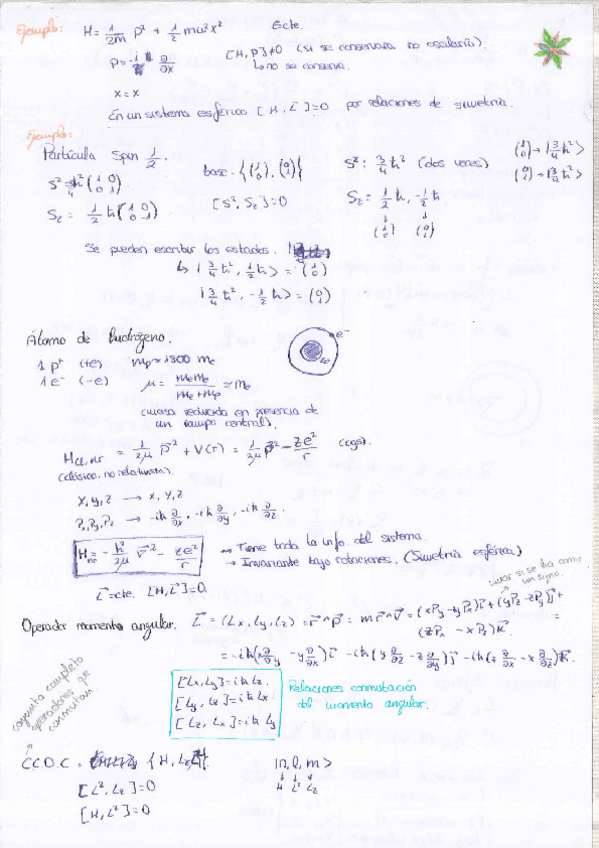 Ejemplo: H = 1/2m p² + 1/2 mω²x² E cte.
p = -i ∂/∂x [H, P] ≠ 0 (si se conservara no oscilaría).
↳ no se conserva.
x = x
En un sistema esférico [H, L⃗] = 0 por relaciones de simetría.
Ejemplo:
Partícula spin 1/2
base {(1 0), (0 1)} S²: 3/4 ħ² (dos veces) (1 0) → |3/4 ħ²>
(0 1) → |3/4 ħ²>
S² = 3/4 ħ² (1 0 0 1)
S_z = 1/2 ħ (1 0 0 1) [S², S_z] = 0 S_z = 1/2 ħ, -1/2 ħ
↓ ↓
(1 0) (0 1)
Se pueden escribir los estados.
↳ |3/4 ħ², 1/2 ħ> = (1 0)
|3/4 ħ², -1/2 ħ> = (0 1)
Átomo de hidrógeno. e⁻
1 p⁺ (+e) m_p ≈ 1800 m_e
1 e⁻ (-e) μ = m_e m_p / m_e + m_p ≈ m_e
(masa reducida en presencia de
un campo central).
H_cl,nr = 1/2μ p⃗² + V(r) = 1/2μ p⃗² - Ze²/r (cgs).
(clásico, no relativista).
x, y, z → x, y, z
P_x, P_y, P_z → -iħ ∂/∂x, -iħ ∂/∂y, -iħ ∂/∂z.
H_nr = -ħ²/2μ ∇⃗² - Ze²/r → Tiene toda la info. del sistema.
→ Invariante bajo rotaciones. (Simetría esférica)
L⃗ = cte. [H, L⃗] = 0
mirar si se ha comido un signo.
Operador momento angular. L⃗ = (Lx, Ly, Lz) = r⃗ ∧ p⃗ = m r⃗ ∧ v⃗ = (xPy - yPx)i⃗ + (yPz - zPy)j⃗ +
(zPx - xPz)k⃗ =
= -iħ(x ∂/∂y - y ∂/∂x)i⃗ - iħ(y ∂/∂z - z ∂/∂y)j⃗ - iħ(z ∂/∂x - x ∂/∂z)k⃗.
[Lx, Ly] = iħ Lz.
[Ly, Lz] = iħ Lx
[Lz, Lx] = iħ Ly
Relaciones conmutación
del momento angular.
conjunto completo
operadores que
conmutan.
C.C.O.C = {H, Lz, |n, l, m>
↓ ↓ ↓
H L² Lz
[L², Lz] = 0
[H, L²] = 0